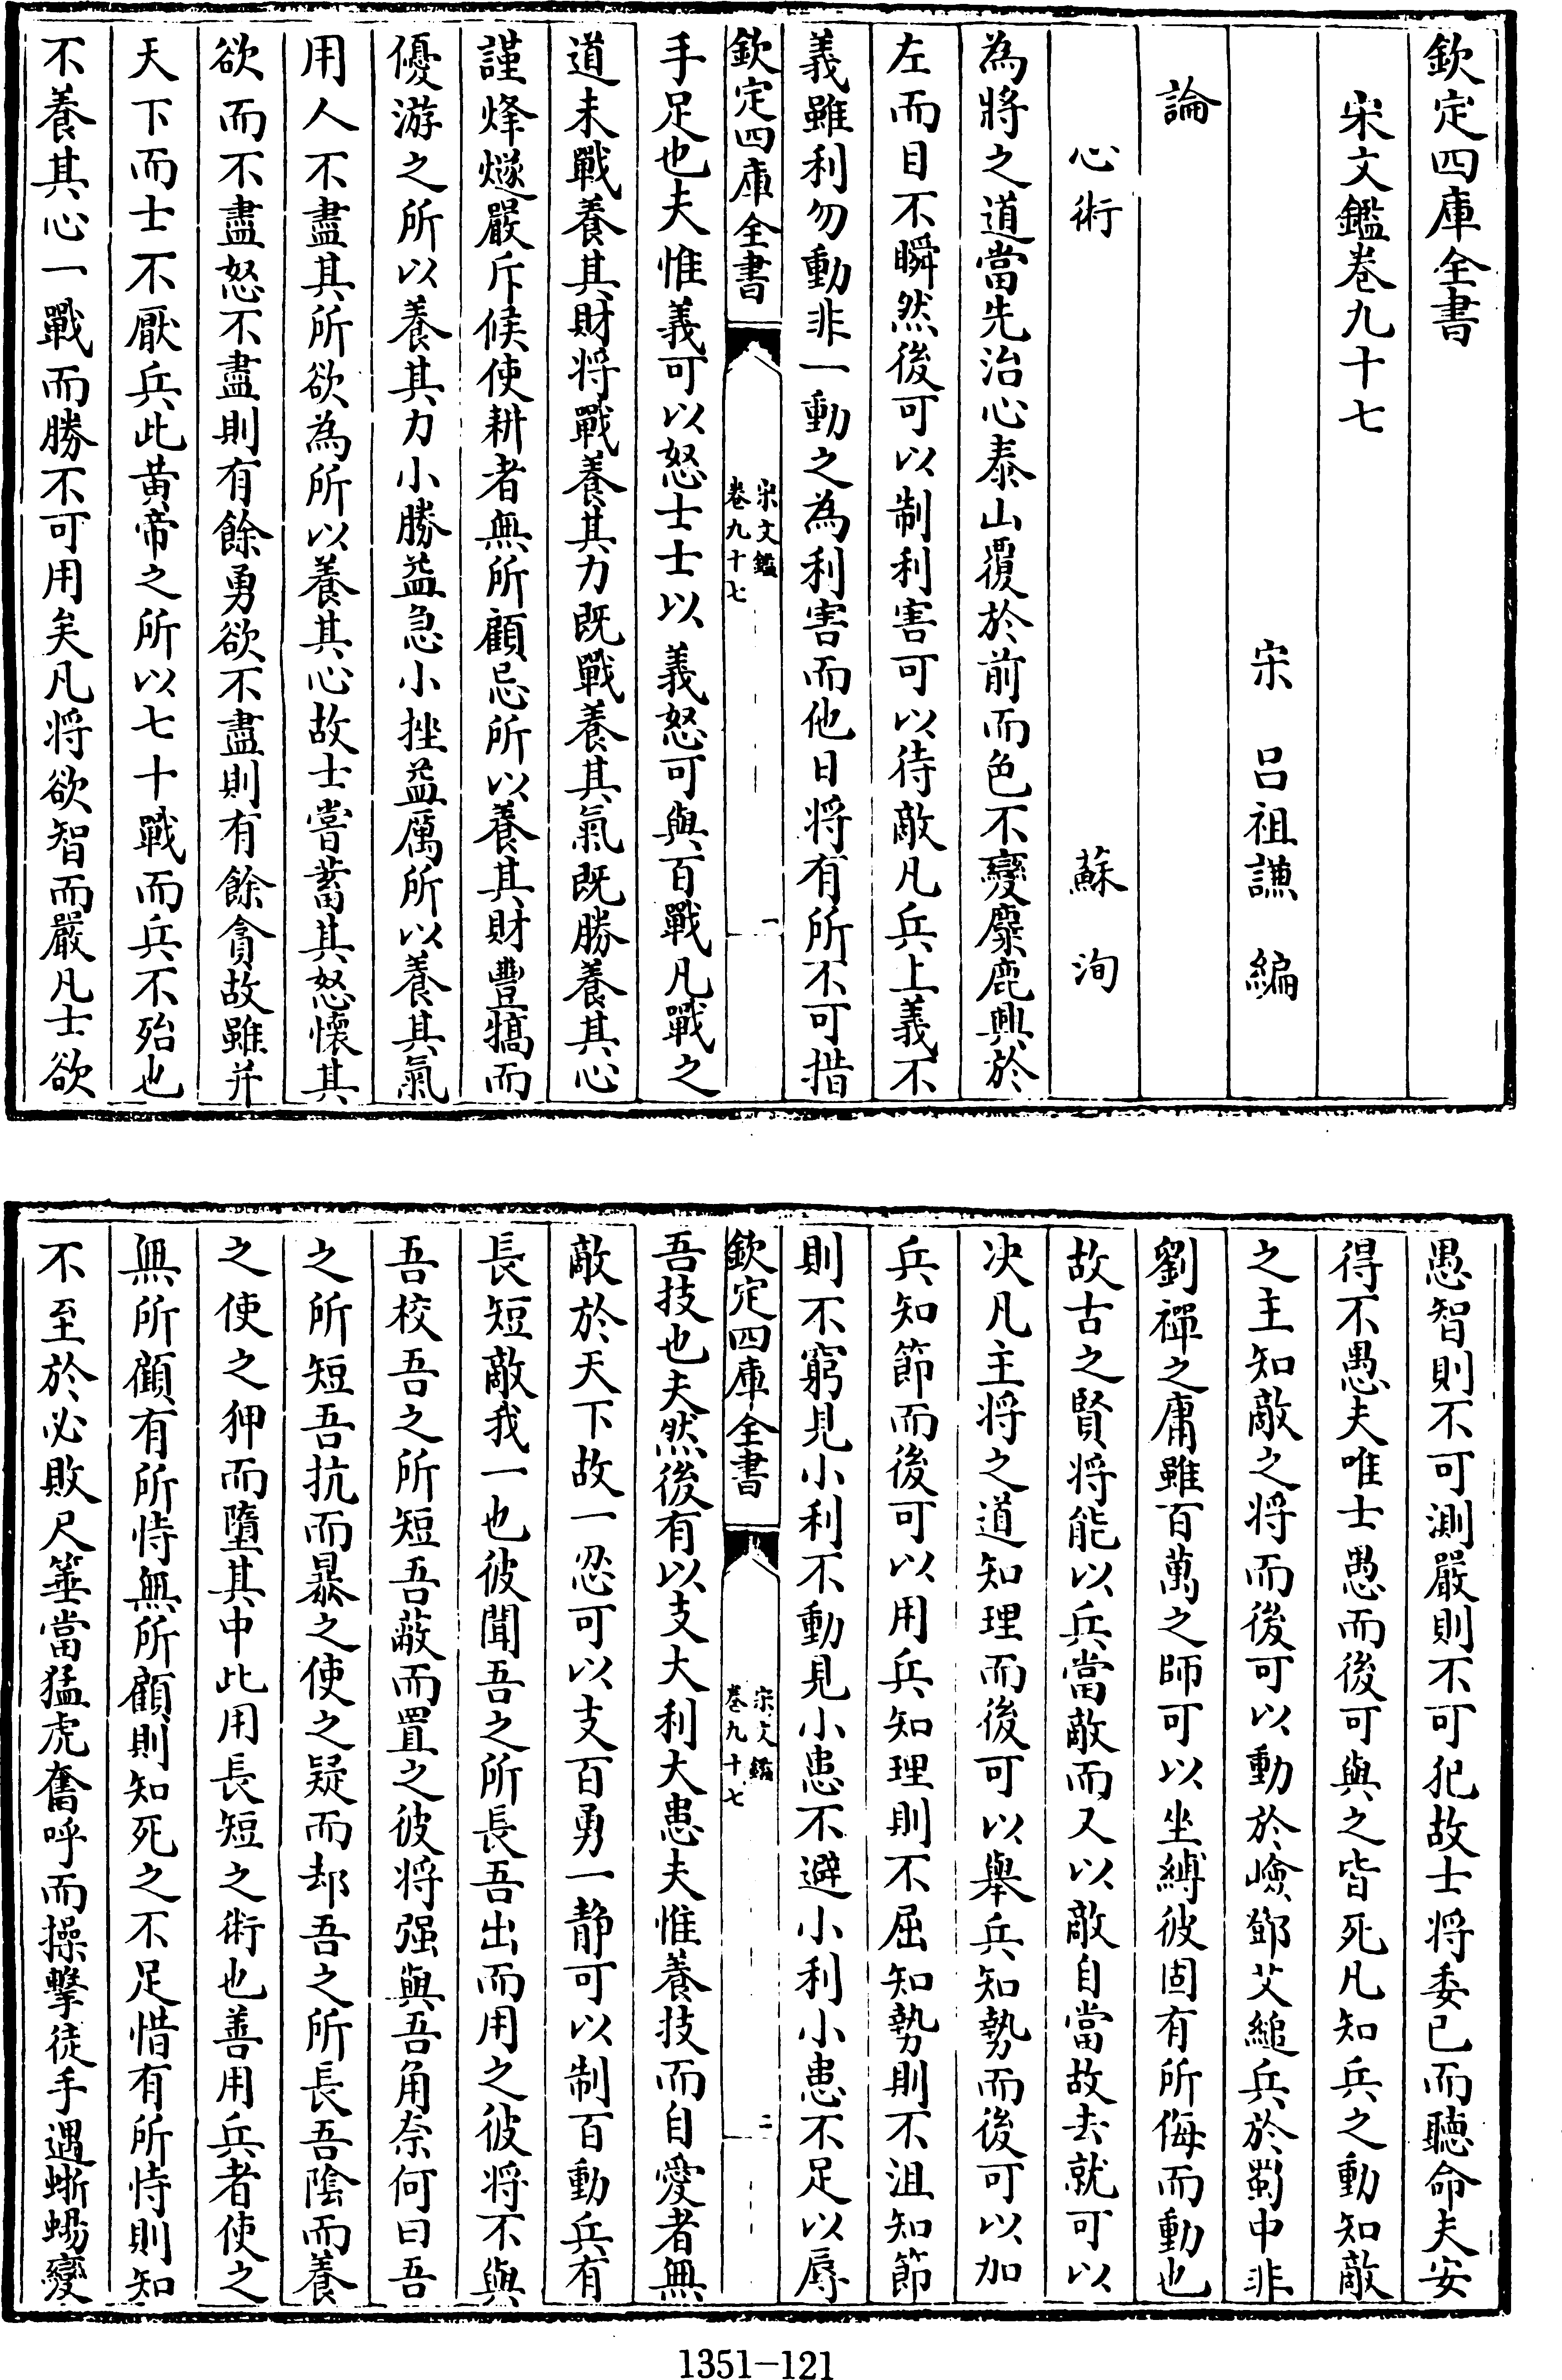 欽定四庫全書
宋文鑑巻九十七
宋　呂祖謙　編
論
心術　蘇　洵
為將之道當先治心泰山覆於前而色不變麋鹿興於
左而目不瞬然後可以制利害可以待敵凡兵上義不
義雖利勿動非一動之為利害而他日將有所不可措
欽定四庫全書
宋文鑑
巻九十七
一
手足也夫惟義可以怒士士以義怒可與百戰凡戰之
道未戰養其財将戰養其力既戰養其氣既勝養其心
謹烽燧嚴斥候使耕者無所顧忌所以養其財豐犒而
優游之所以養其力小勝益急小挫益厲所以養其氣
用人不盡其所欲為所以養其心故士嘗蓄其怒懷其
欲而不盡怒不盡則有餘勇欲不盡則有餘貪故雖并
天下而士不厭兵此黄帝之所以七十戰而兵不殆也
不養其心一戰而勝不可用矣凡将欲智而嚴凡士欲
愚智則不可測嚴則不可犯故士将委已而聽命夫安
得不愚夫唯士愚而後可與之皆死凡知兵之動知敵
之主知敵之将而後可以動於嶮鄧艾縋兵於蜀中非
劉禪之庸雖百萬之師可以坐縛彼固有所侮而動也
故古之賢将能以兵當敵而又以敵自當故去就可以
决凡主将之道知理而後可以舉兵知勢而後可以加
兵知節而後可以用兵知理則不屈知勢則不沮知節
則不窮見小利不動見小患不避小利小患不足以辱
欽定四庫全書
宋文鑑
巻九十七
二
吾技也夫然後有以支大利大患夫惟養技而自愛者無
敵於天下故一忍可以支百勇一静可以制百動兵有
長短敵我一也彼聞吾之所長吾出而用之彼将不與
吾校吾之所短吾蔽而置之彼将强與吾角奈何曰吾
之所短吾抗而暴之使之疑而却吾之所長吾陰而養
之使之狎而墮其中此用長短之術也善用兵者使之
無所顧有所恃無所顧則知死之不足惜有所恃則知
不至於必敗尺箠當猛虎奮呼而操擊徒手遇蜥蜴變
1351-121